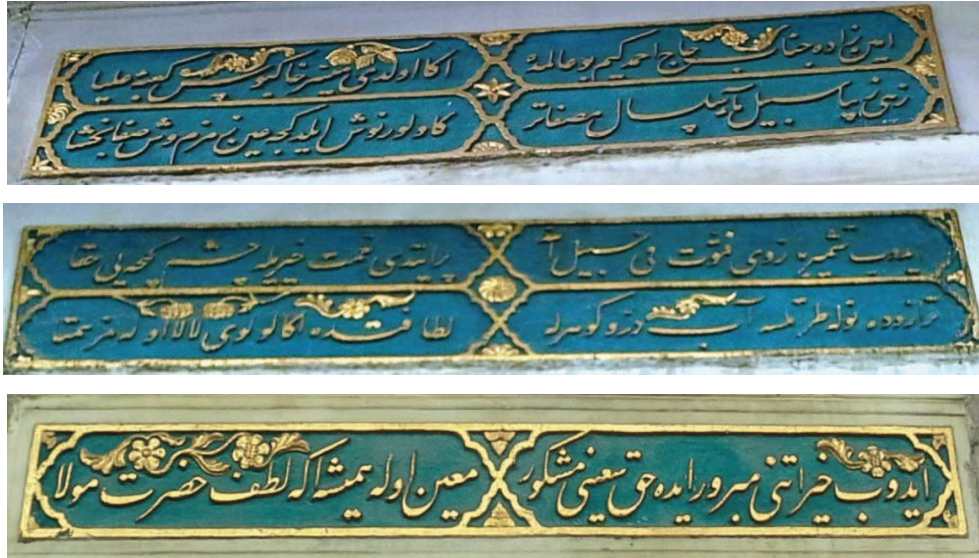 امین زاده جناب حاج احمد کیم بو عالمده
اکا اولدی میسر خاکبوس کعبه علیا
زهی زیبا سبیل سلسال مصفاتر
کاولور نوش ایلدکجه عین زمزم وش صفابخشا
ایدوب تشمیر فتوت فی سبیل الله
ترازوده نوله طرتلسه آب در و کوهرله
لطافتده اکا لولوی لالا اوله مز همتا
ایدوب خیراتنی مبرور ایده حق سعینی مشکور
معین اوله همیشه اکه لطف حضرت مولا